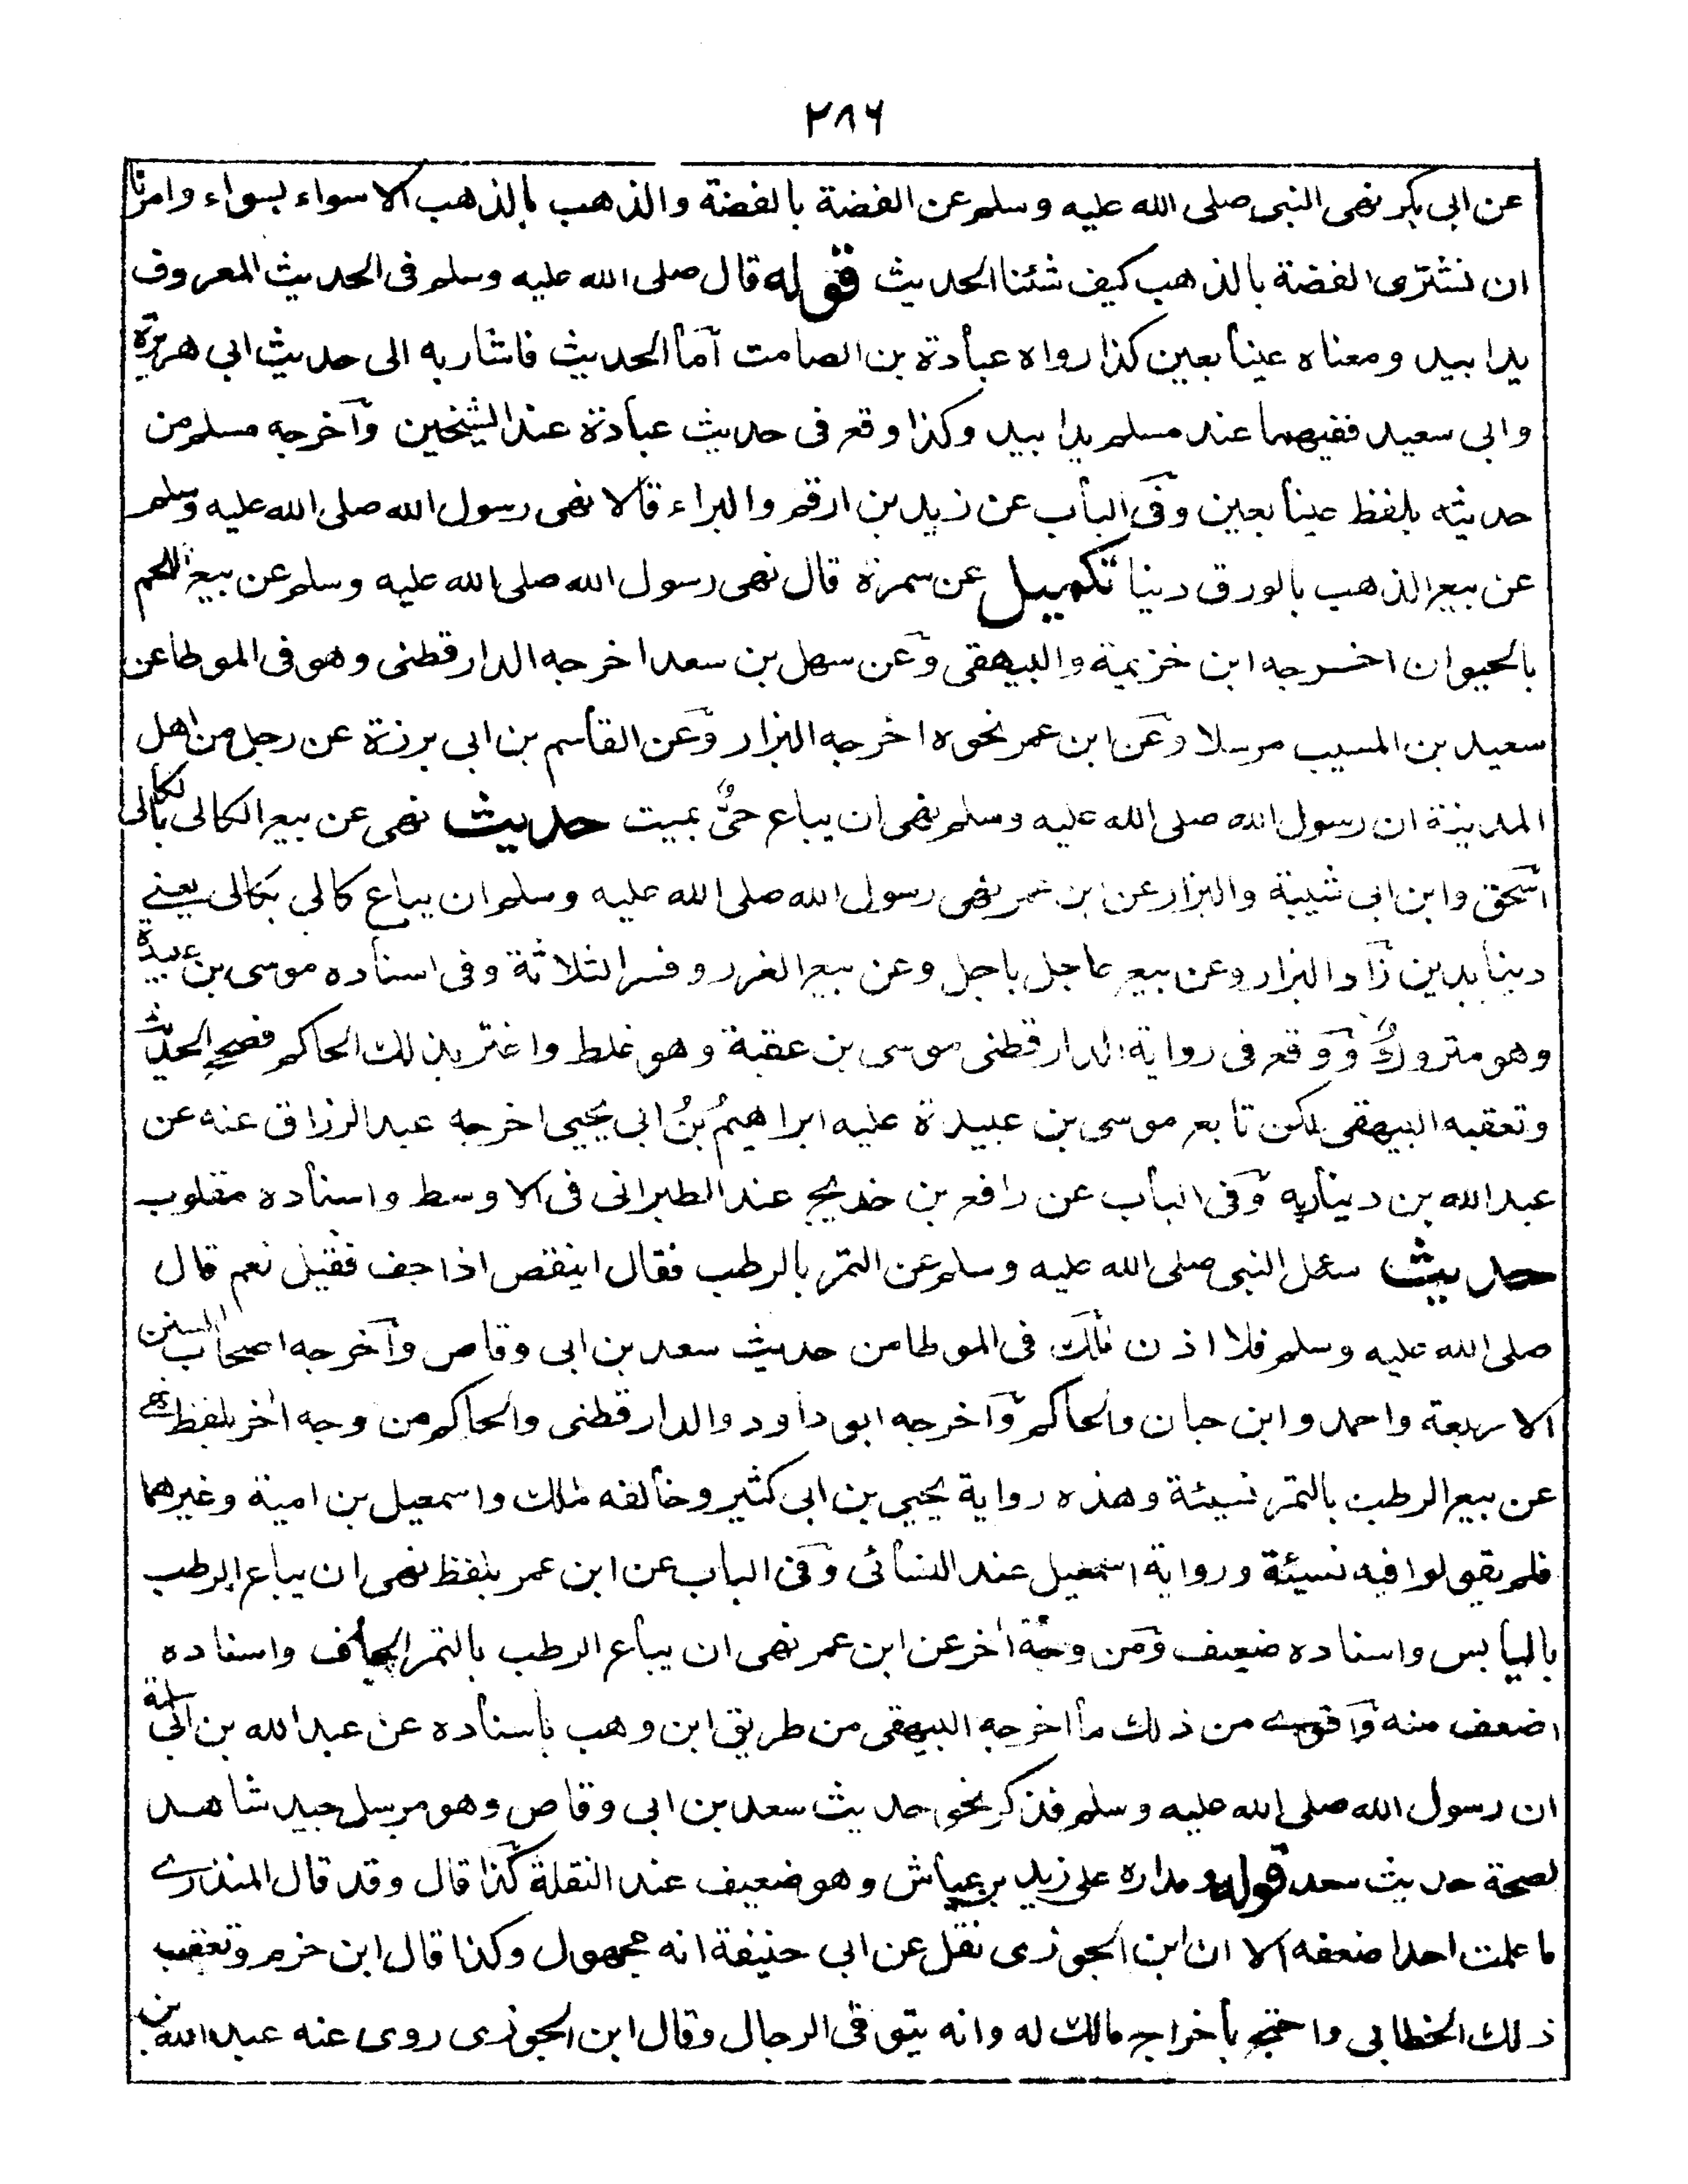 ۲۸۶
عن ابى بكر نهى النبى صلى الله عليه وسلم عن الفضة بالفضة والذهب بالذهب الا سواء بسواء وامرنا
ان نشترى الفضة بالذهب كيف شئنا الحديث قوله قال صلى الله عليه وسلم فى الحديث المعروف
يدا بيد ومعناه عينا بعين كذا رواه عبادة بن الصامت اما الحديث فاشار به الى حديث ابى هريرة
وابى سعيد ففيهما عند مسلم يدا بيد وكذا وقع فى حديث عبادة عند الشيخين واخرجه مسلم من
حديثه بلفظ عينا بعين وفى الباب عن زيد بن ارقم والبراء قالا نهى رسول الله صلى الله عليه وسلم
عن بيع الذهب بالورق دينا تكميل عن سمرة قال نهى رسول الله صلى الله عليه وسلم عن بيع اللحم
بالحيوان اخرجه ابن خزيمة والبيهقى وعن سهل بن سعد اخرجه الدارقطنى وهو فى الموطا عن
سعيد بن المسيب مرسلا وعن ابن عمر نحوه اخرجه البزار وعن القاسم بن ابى برزة عن رجل من اهل
المدينة ان رسول الله صلى الله عليه وسلم نهى ان يباع حىٌّ بميت حديث نهى عن بيع الكالى بالكالى
اسحق وابن ابى شيبة والبزار عن ابن عمر نهى رسول الله صلى الله عليه وسلم ان يباع كالى بكالى يعنے
دينا بدين زاد البزار وعن بيع عاجل باجل وعن بيع الغرر وفسر الثلاثة وفى اسناده موسى بن عبيدة
وهو متروكٌ ووقع فى رواية الدارقطنى موسى بن عقبة وهو غلط واغتر بذلك الحاكم فصحح الحديث
وتعقبه البيهقى لكن تابع موسى بن عبيدة عليه ابراهيمُ بنُ ابى يحيى اخرجه عبد الرزاق عنه عن
عبد الله بن دينار به وفى الباب عن رافع بن خديج عند الطبرانى فى الاوسط واسناده مقلوب
حديث سئل النبى صلى الله عليه وسلم عن التمر بالرطب فقال اينقص اذا جف فقيل نعم قال
صلى الله عليه وسلم فلا اذن مالك فى الموطا من حديث سعد بن ابى وقاص واخرجه اصحاب السنن
الاربعة واحمد وابن حبان والحاكم واخرجه ابو داود والدارقطنى والحاكم من وجه اخر بلفظ نهى
عن بيع الرطب بالتمر نسيئة وهذه رواية يحيى بن ابى كثير وخالفه مالك واسمعيل بن امية وغيرهما
فلم يقولوا فيه نسيئة ورواية اسمعيل عند النسائى وفى الباب عن ابن عمر بلفظ نهى ان يباع الرطب
باليابس واسناده ضعيف ومن وجه اخر عن ابن عمر نهى ان يباع الرطب بالتمر الجاف واسناده
اضعف منه واقوے من ذلك ما اخرجه البيهقى من طريق ابن وهب باسناده عن عبد الله بن ابى سلمة
ان رسول الله صلى الله عليه وسلم فذكر نحو حديث سعد بن ابى وقاص وهو مرسل جيد شاهد
لصحة حديث سعد قوله ومداره على زيد بن عياش وهو ضعيف عند النقلة كذا قال وقد قال المنذرے
ما علمت احدا ضعفه الا ان ابن الجوزى نقل عن ابى حنيفة انه مجهول وكذا قال ابن حزم وتعقب
ذلك الخطابى واحتج باخراج مالك له وانه يتوقى الرجال وقال ابن الجوزى روى عنه عبد الله بن